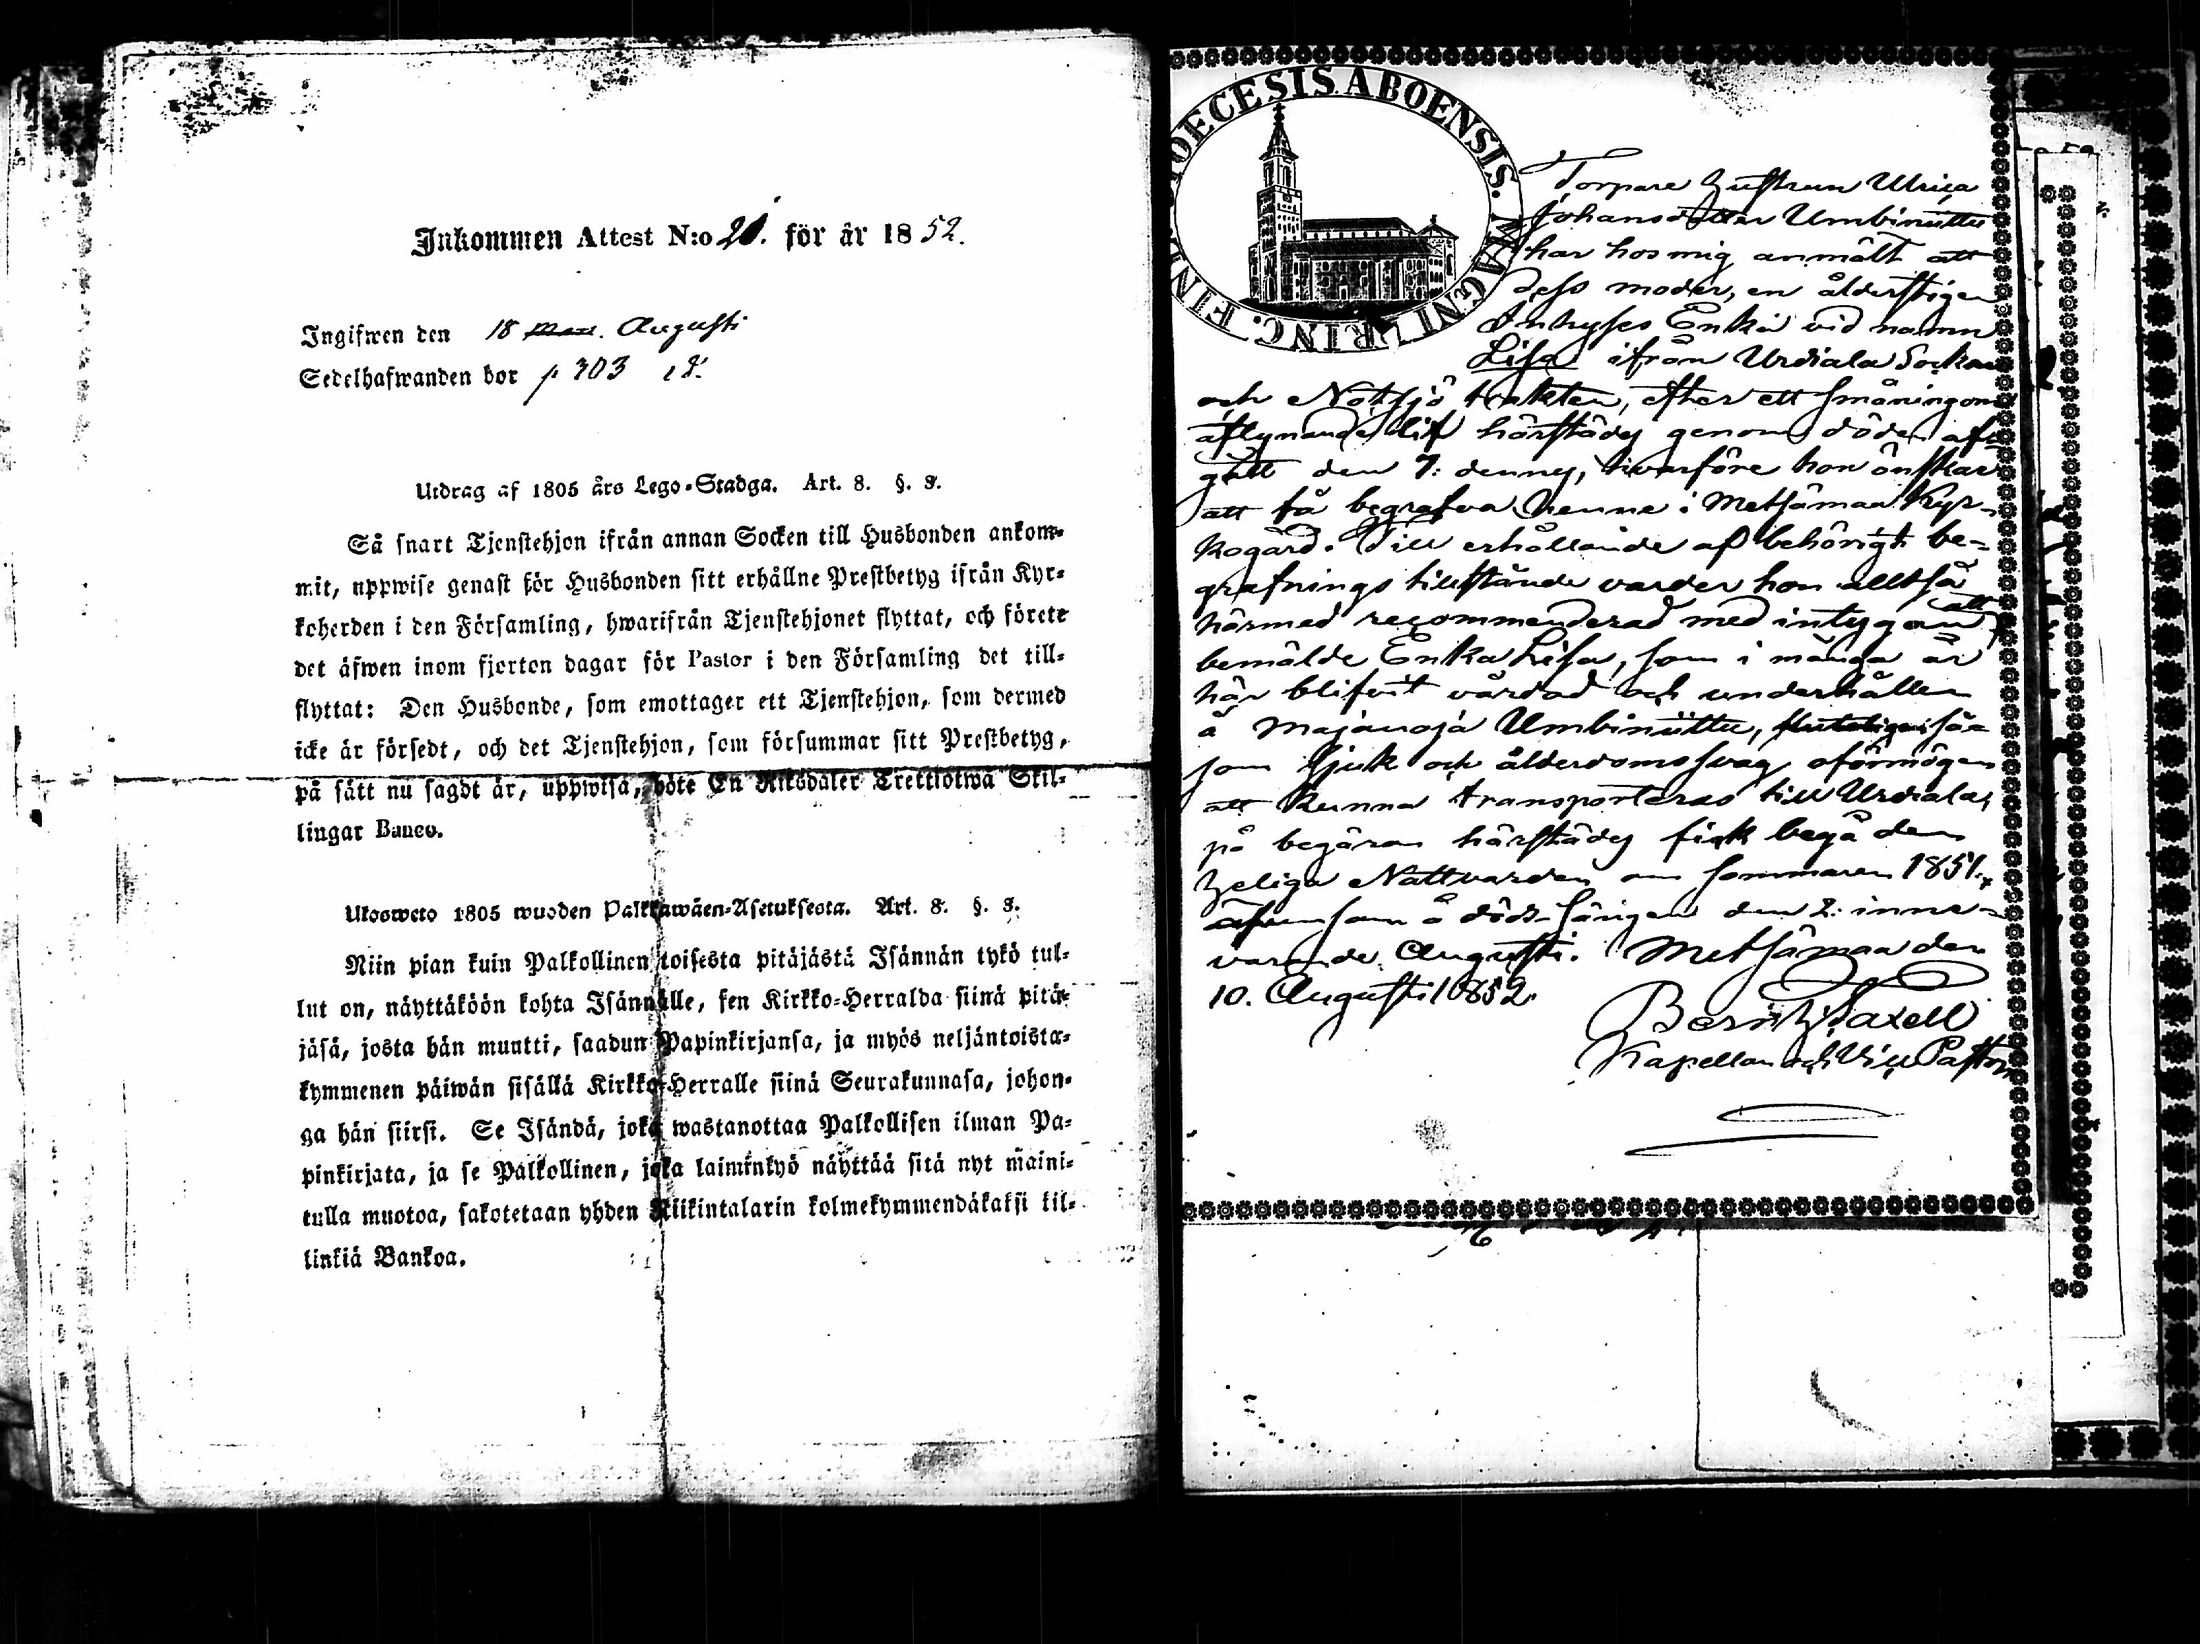 Inkommen Attest N:o 21. för år 1852.
Ingifwen den 18 Augusti
Sedelhafwanden bor p 303
Utdrag af 1805 års Lego-Stadga. Art. 8. §. 3.
Så snart Tjenstehjon ifrån annan Socken till Husbonden ankom-
mit, uppwise genast för Husbonden sitt erhållne Prestbetyg ifrån Kyr-
koherden i den Församling, hwarifrån Tjenstehjonet flyttat, och förete
det äfwen inom fjorton dagar för Pastor i den Församling det till-
flyttat: Den Husbonde, som emottager ett Tjenstehjon, som dermed
icke är försedt, och det Tjenstehjon, som försummar sitt Prestbetyg,
på sätt nu sagdt är, uppwisa, böte En Riksdaler Trettiotwå Skil-
lingar Banco.
Ulosweto 1805 wuoden Palkkawäen-Asetuksesta. Art. 8. §. 3.
Niin pian kuin Palkollinen toisesta pitäjästä Isännän tykö tul-
lut on, näyttäköön kohta Isännälle, sen Kirkko-Herralda siinä pitä-
jäsä, josta hän muutti, saadun Papinkirjansa, ja myös neljäntoista-
kymmenen päiwän sisällä Kirkko-Herralle siinä Seurakunnasa, johon-
ga hän siirsi. Se Isändä, joka wastanottaa Palkollisen ilman Pa-
pinkirjata, ja se Palkollinen, joka laiminlyö näyttää sitä nyt maini-
tulla muotoa, sakotetaan yhden Riikintalarin kolmekymmendäkaksi kil-
linkiä Bankoa.
DIOECESIS ABOENSIS. MAGNI PRINC. FINL.
Torpare hustrun Ulrica
Johansdotter Umbiniittu
har hos mig anmält att
dess moder, en ålderstigen
Inhyses Enka vid namn
Lisa ifrån Urdiala Sockan
och Nötsjö trakten, efter ett småningom
aflynande lif härstädes genom döden af-
gått den 7: dennes, hvarföre hon önskar
att få begrafva henne i Metsämaa Kyr-
kogård. Till erhållande af behörigt be-
grafnings tillstånd varder hon alltså
härmed recommenderad med intygan att
bemälde Enka Lisa, som i många år
här blifvit vårdad och underhållen
å Majanoja Umbiniittu, så-
som sjuk och ålderdomssvag oförmögen
att kunna transporteras till Urdiala,
på begäran härstädes fick begå den
heliga Nattvarden om sommaren 1851,
äfvensom å döds-sängen den 2. inne-
varande Augusti. Metsämaa den
10. Augusti 1852.
Bernh. Saxell
Kapellan och Vice Pastor